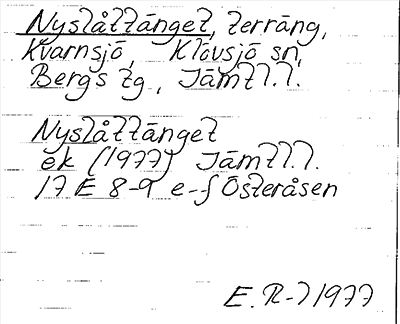 Nyslåttänget, terräng,
Kvarnsjö, Klövsjö sn,
Bergs tg, Jämtl.l.
Nyslåttänget
ek (1977) Jämtl.l.
17 E 8-9 e-f Österåsen
E. R-7 1977